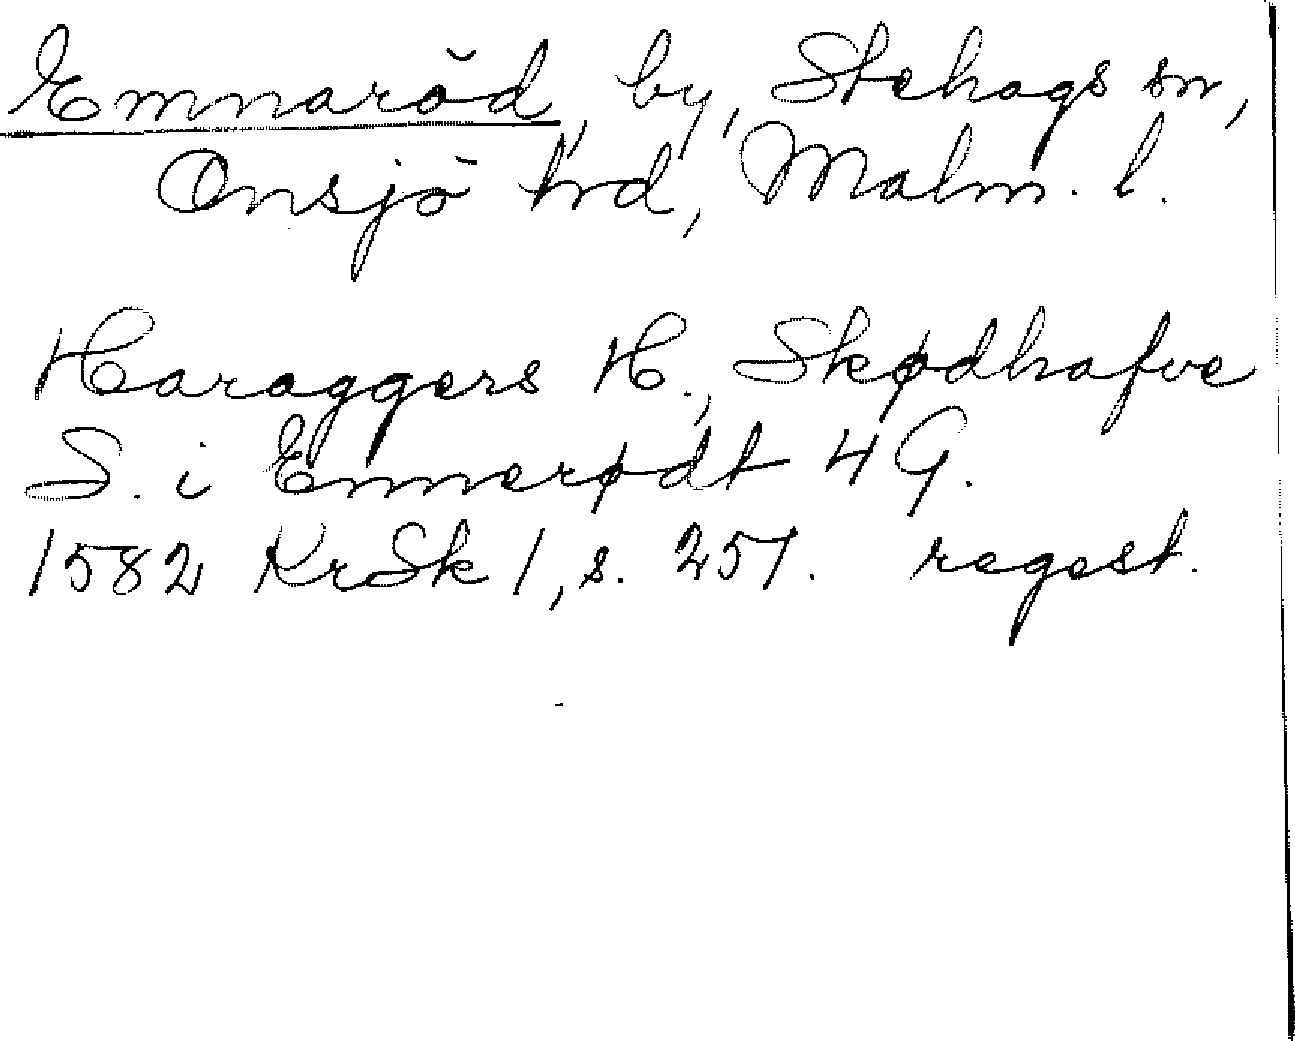 Emnaröd, by, Stehags sn,
Onsjö hrd, Malm. l.
Haraggers H., Skødhafve
S. i Ennerødt 4 G.
1582 KrSk 1, s. 251. regest.